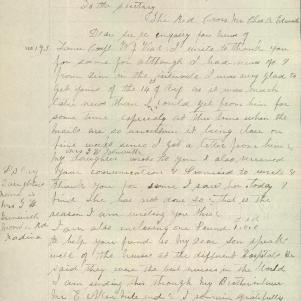 To the Secretary
The Red Cross
Dear Sir re enquiry for news of
No 193 Lance Corpl W J I write to thank you
for some for although I had news of
from him in the I was very glad to
get yours of the 14 of Sep as it was much
later news than I could get from him for
some time especially at this time when the
mails are so uncertain it being close on
five weeks since I got a letter from him
Mrs G W
My daughter wrote to you I also received
your communication & promised to write &
thank you for same I saw her today &
find she has not done so. This is the
reason I am writing you this
I am also enclosing one Pound
to help your fund as my dear son speaks
well of the nurses at the different hospitals he
said they were the best nurses in the World
I am sending this through my Brother in law
Mr I remain gratefully
P.S. my
Daughters
name is
Mrs G W
Rd
Kadina